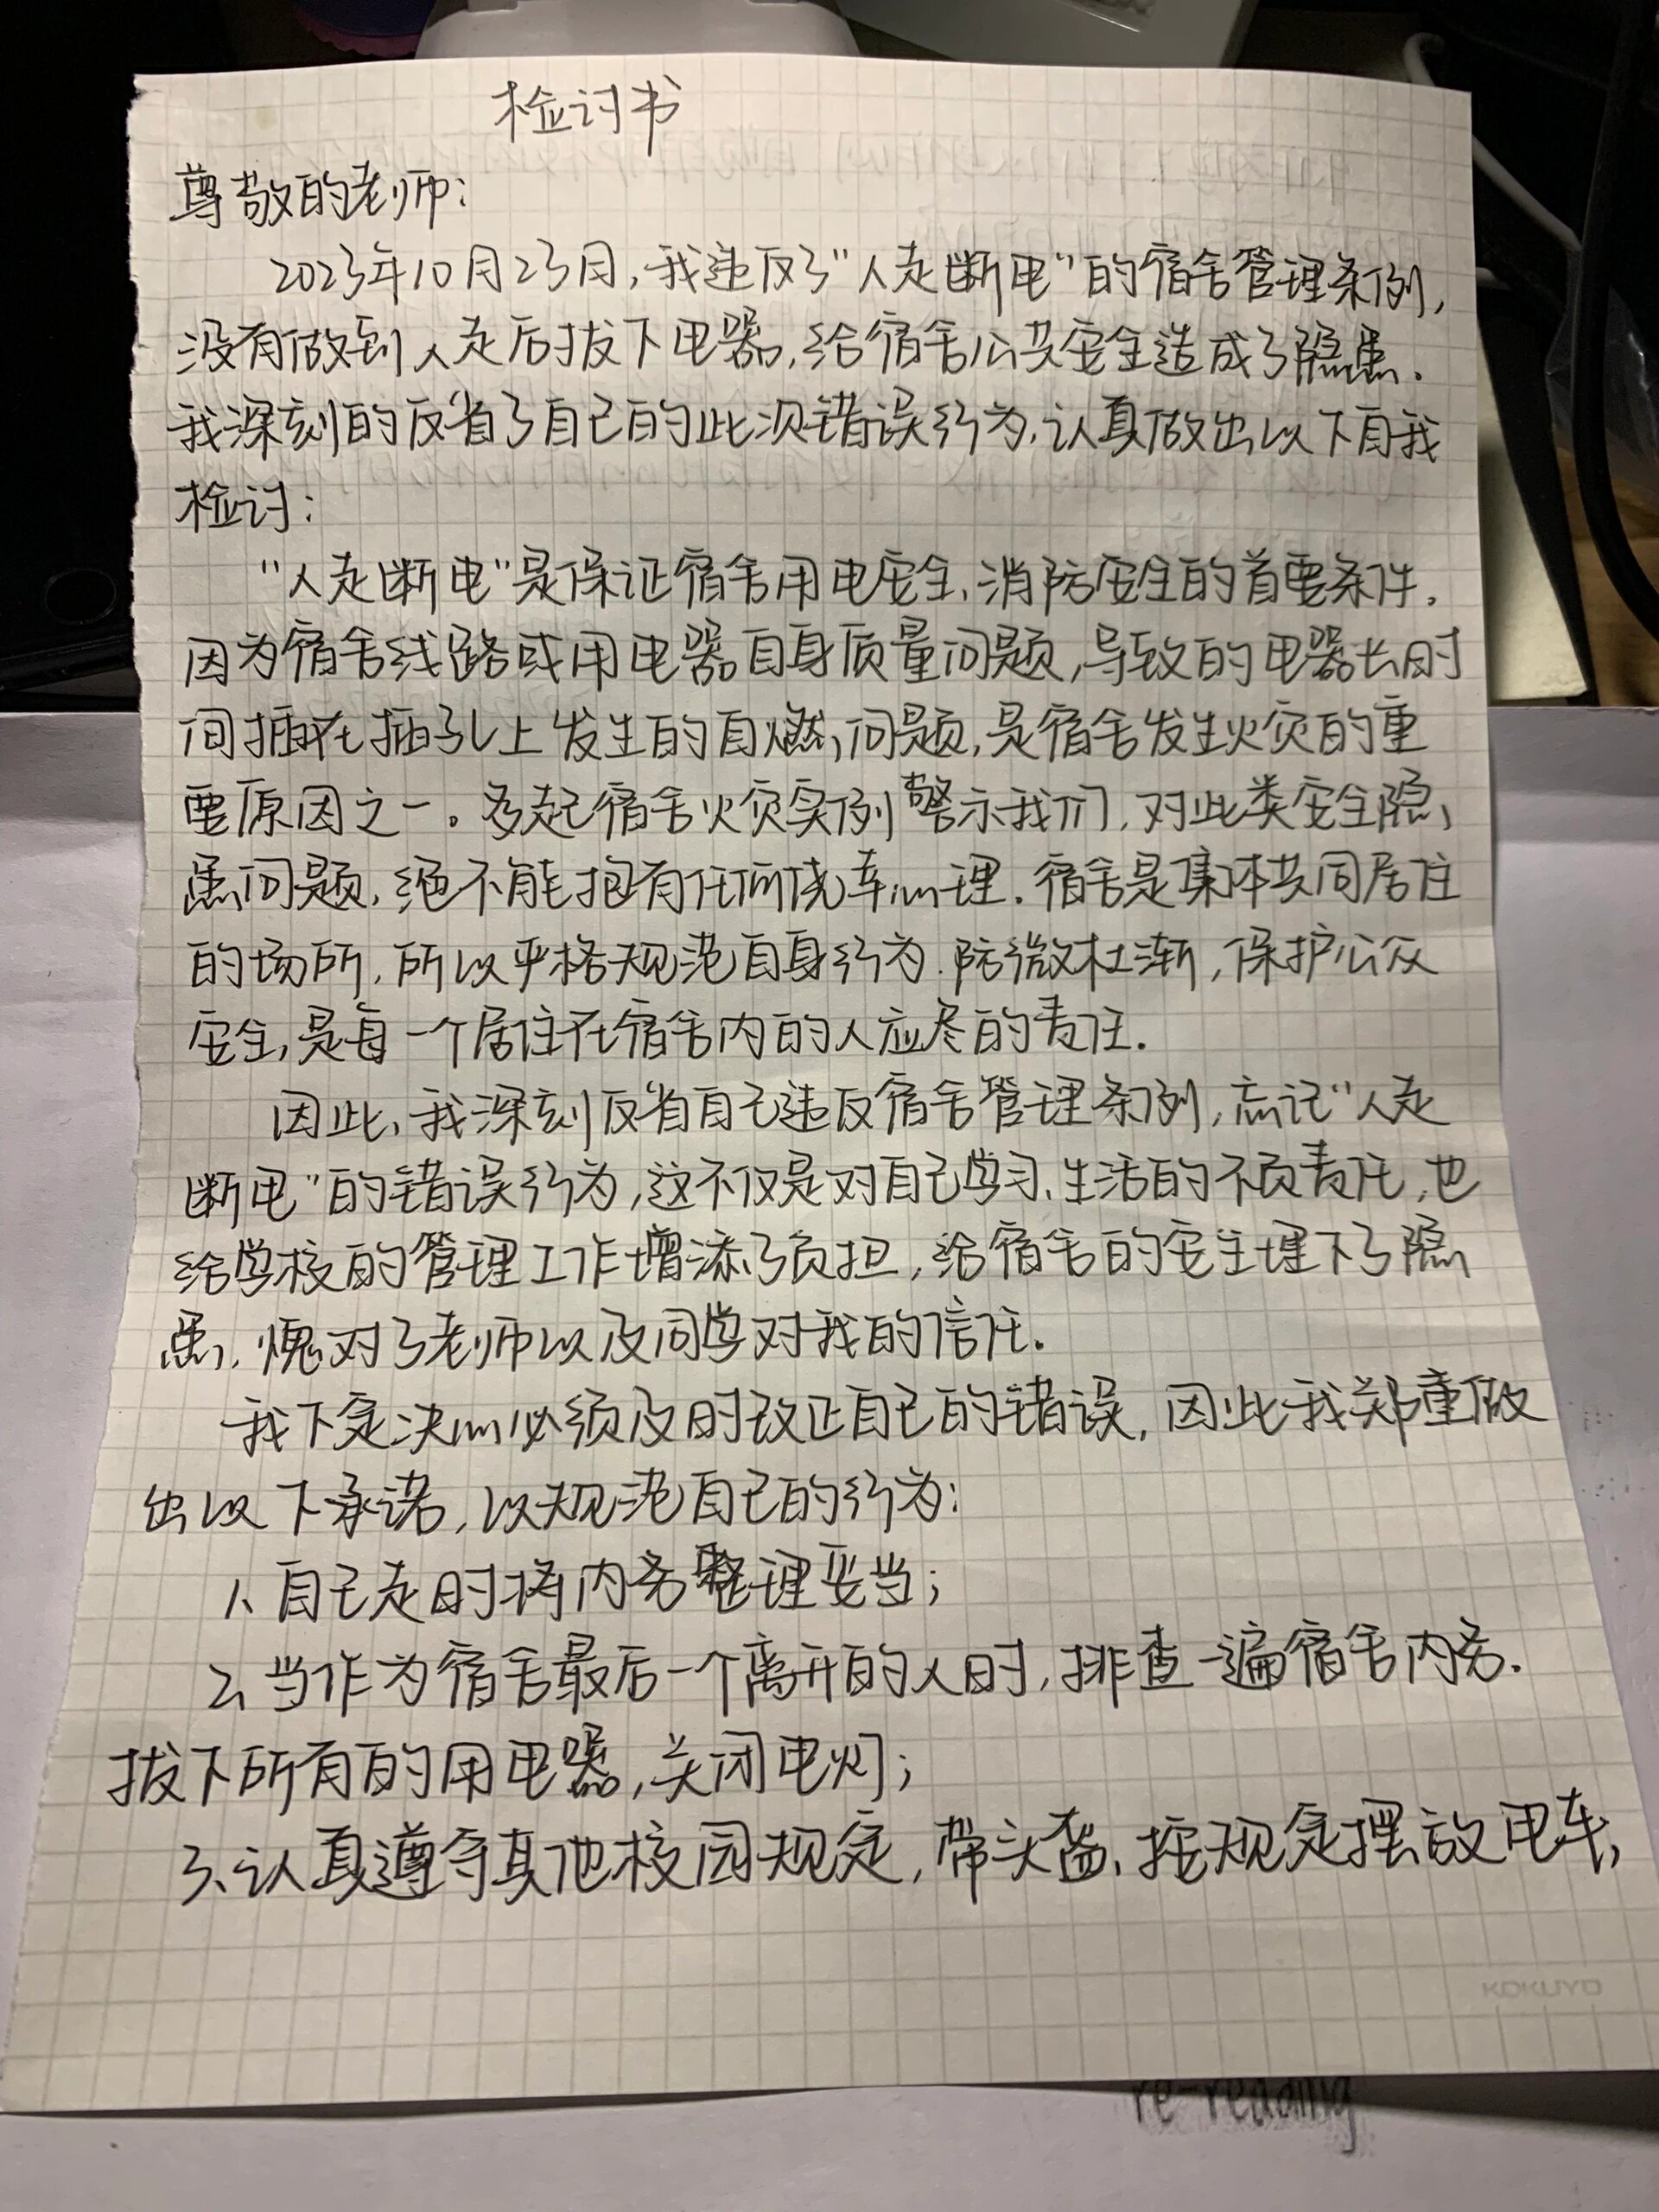 检讨书
尊敬的老师：
2023年10月23日，我违反了“人走断电”的宿舍管理条例，
没有做到人走后拔下电器，给宿舍公共安全造成了隐患．
我深刻的反省了自己的此次错误行为，认真做出以下自我
检讨：
“人走断电”是保证宿舍用电安全、消防安全的首要条件．
因为宿舍线路或用电器自身质量问题，导致的电器长时
间插在插孔上发生的自燃问题，是宿舍发生火灾的重
要原因之一。多起宿舍火灾实例警示我们，对此类安全隐
患问题，绝不能抱有任何侥幸心理．宿舍是集体共同居住
的场所，所以严格规范自身行为．防微杜渐，保护公众
安全，是每一个居住在宿舍内的人应尽的责任．
因此，我深刻反省自己违反宿舍管理条例，忘记“人走
断电”的错误行为，这不仅是对自己学习、生活的不负责任，也
给学校的管理工作增添了负担，给宿舍的安全埋下了隐
患，愧对了老师以及同学对我的信任．
我下定决心必须及时改正自己的错误，因此我郑重做
出以下承诺，以规范自己的行为：
1、自己走时将内务整理妥当；
2、当作为宿舍最后一个离开的人时，排查一遍宿舍内务．
拔下所有的用电器，关闭电灯；
3、认真遵守其他校园规定，带头盔、按规定摆放电车，
KOKUYO
re-reading